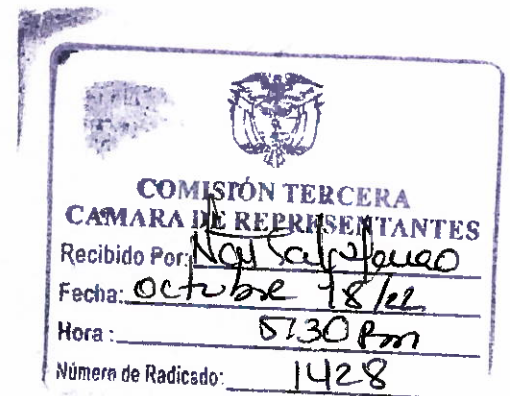 COMISIÓN TERCERA
CAMARA DE REPRESENTANTES
Recibido Por:
Fecha: Octubre 18/22
Hora: 5:30 pm
Número de Radicado: 1428